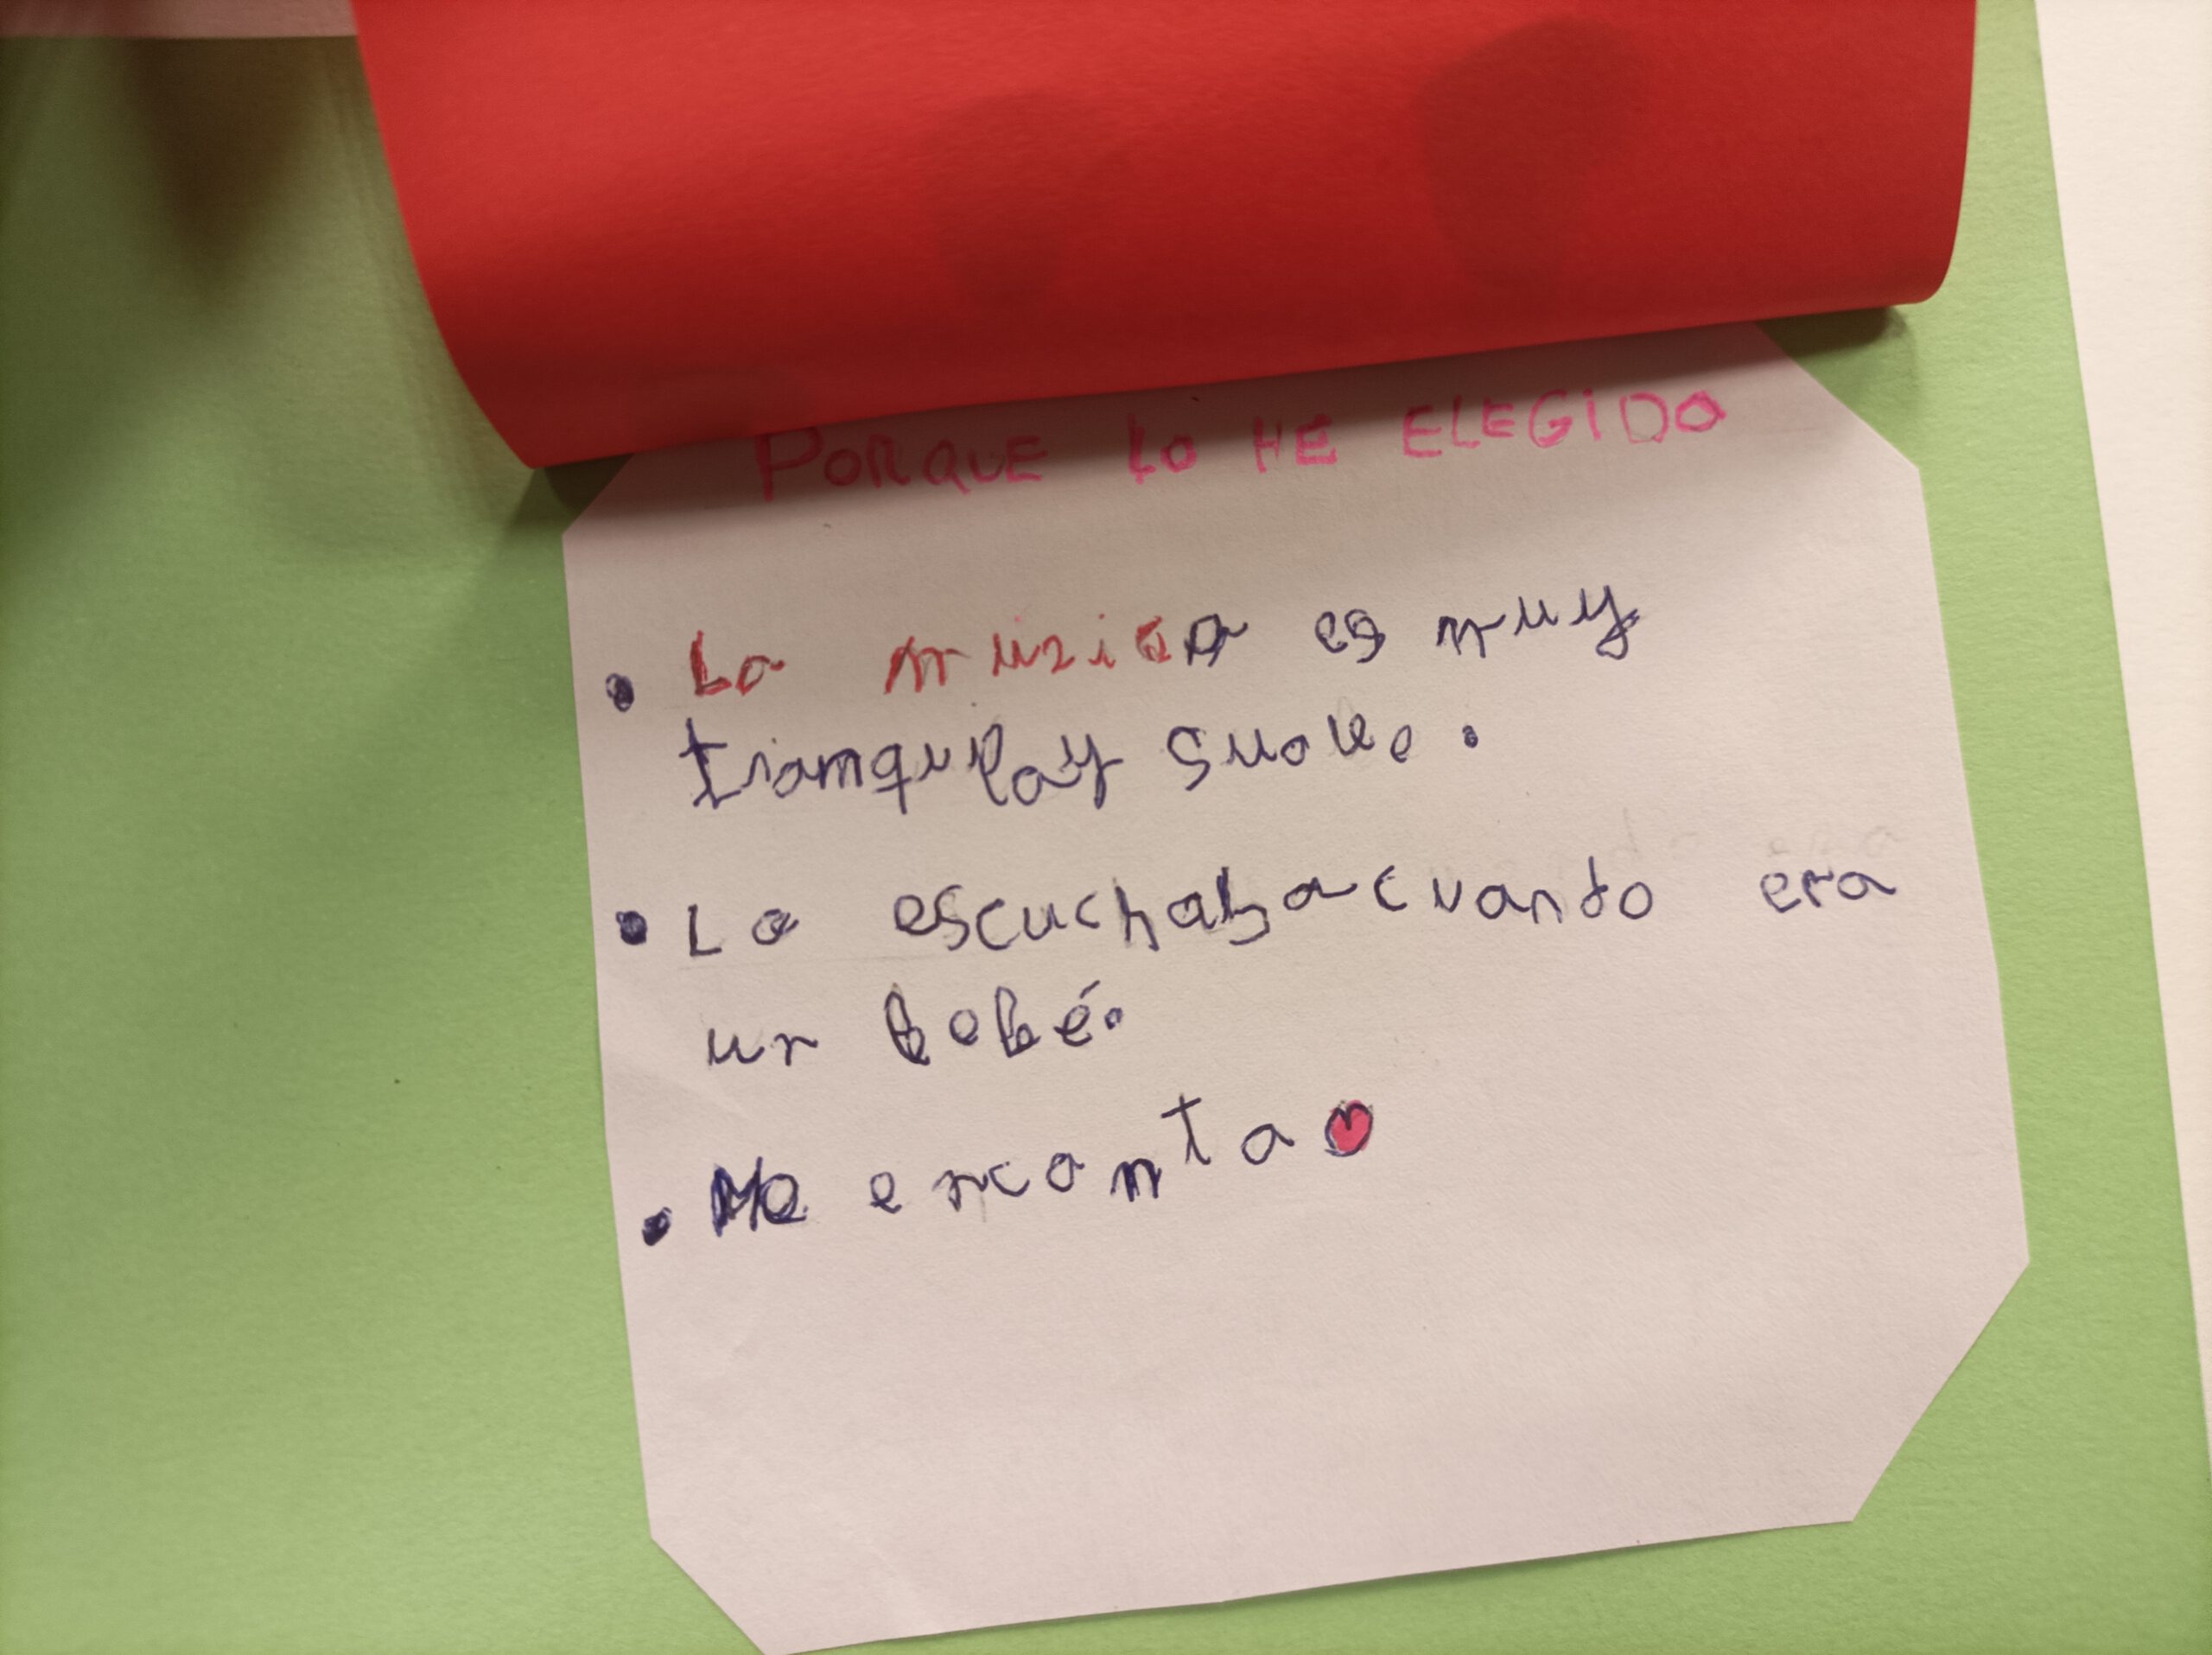 PORQUE LO HE ELEGIDO
• La muzica es muy
tranquilay suave.
• La escuchaba cuando era
un bebé.
• Me encanta